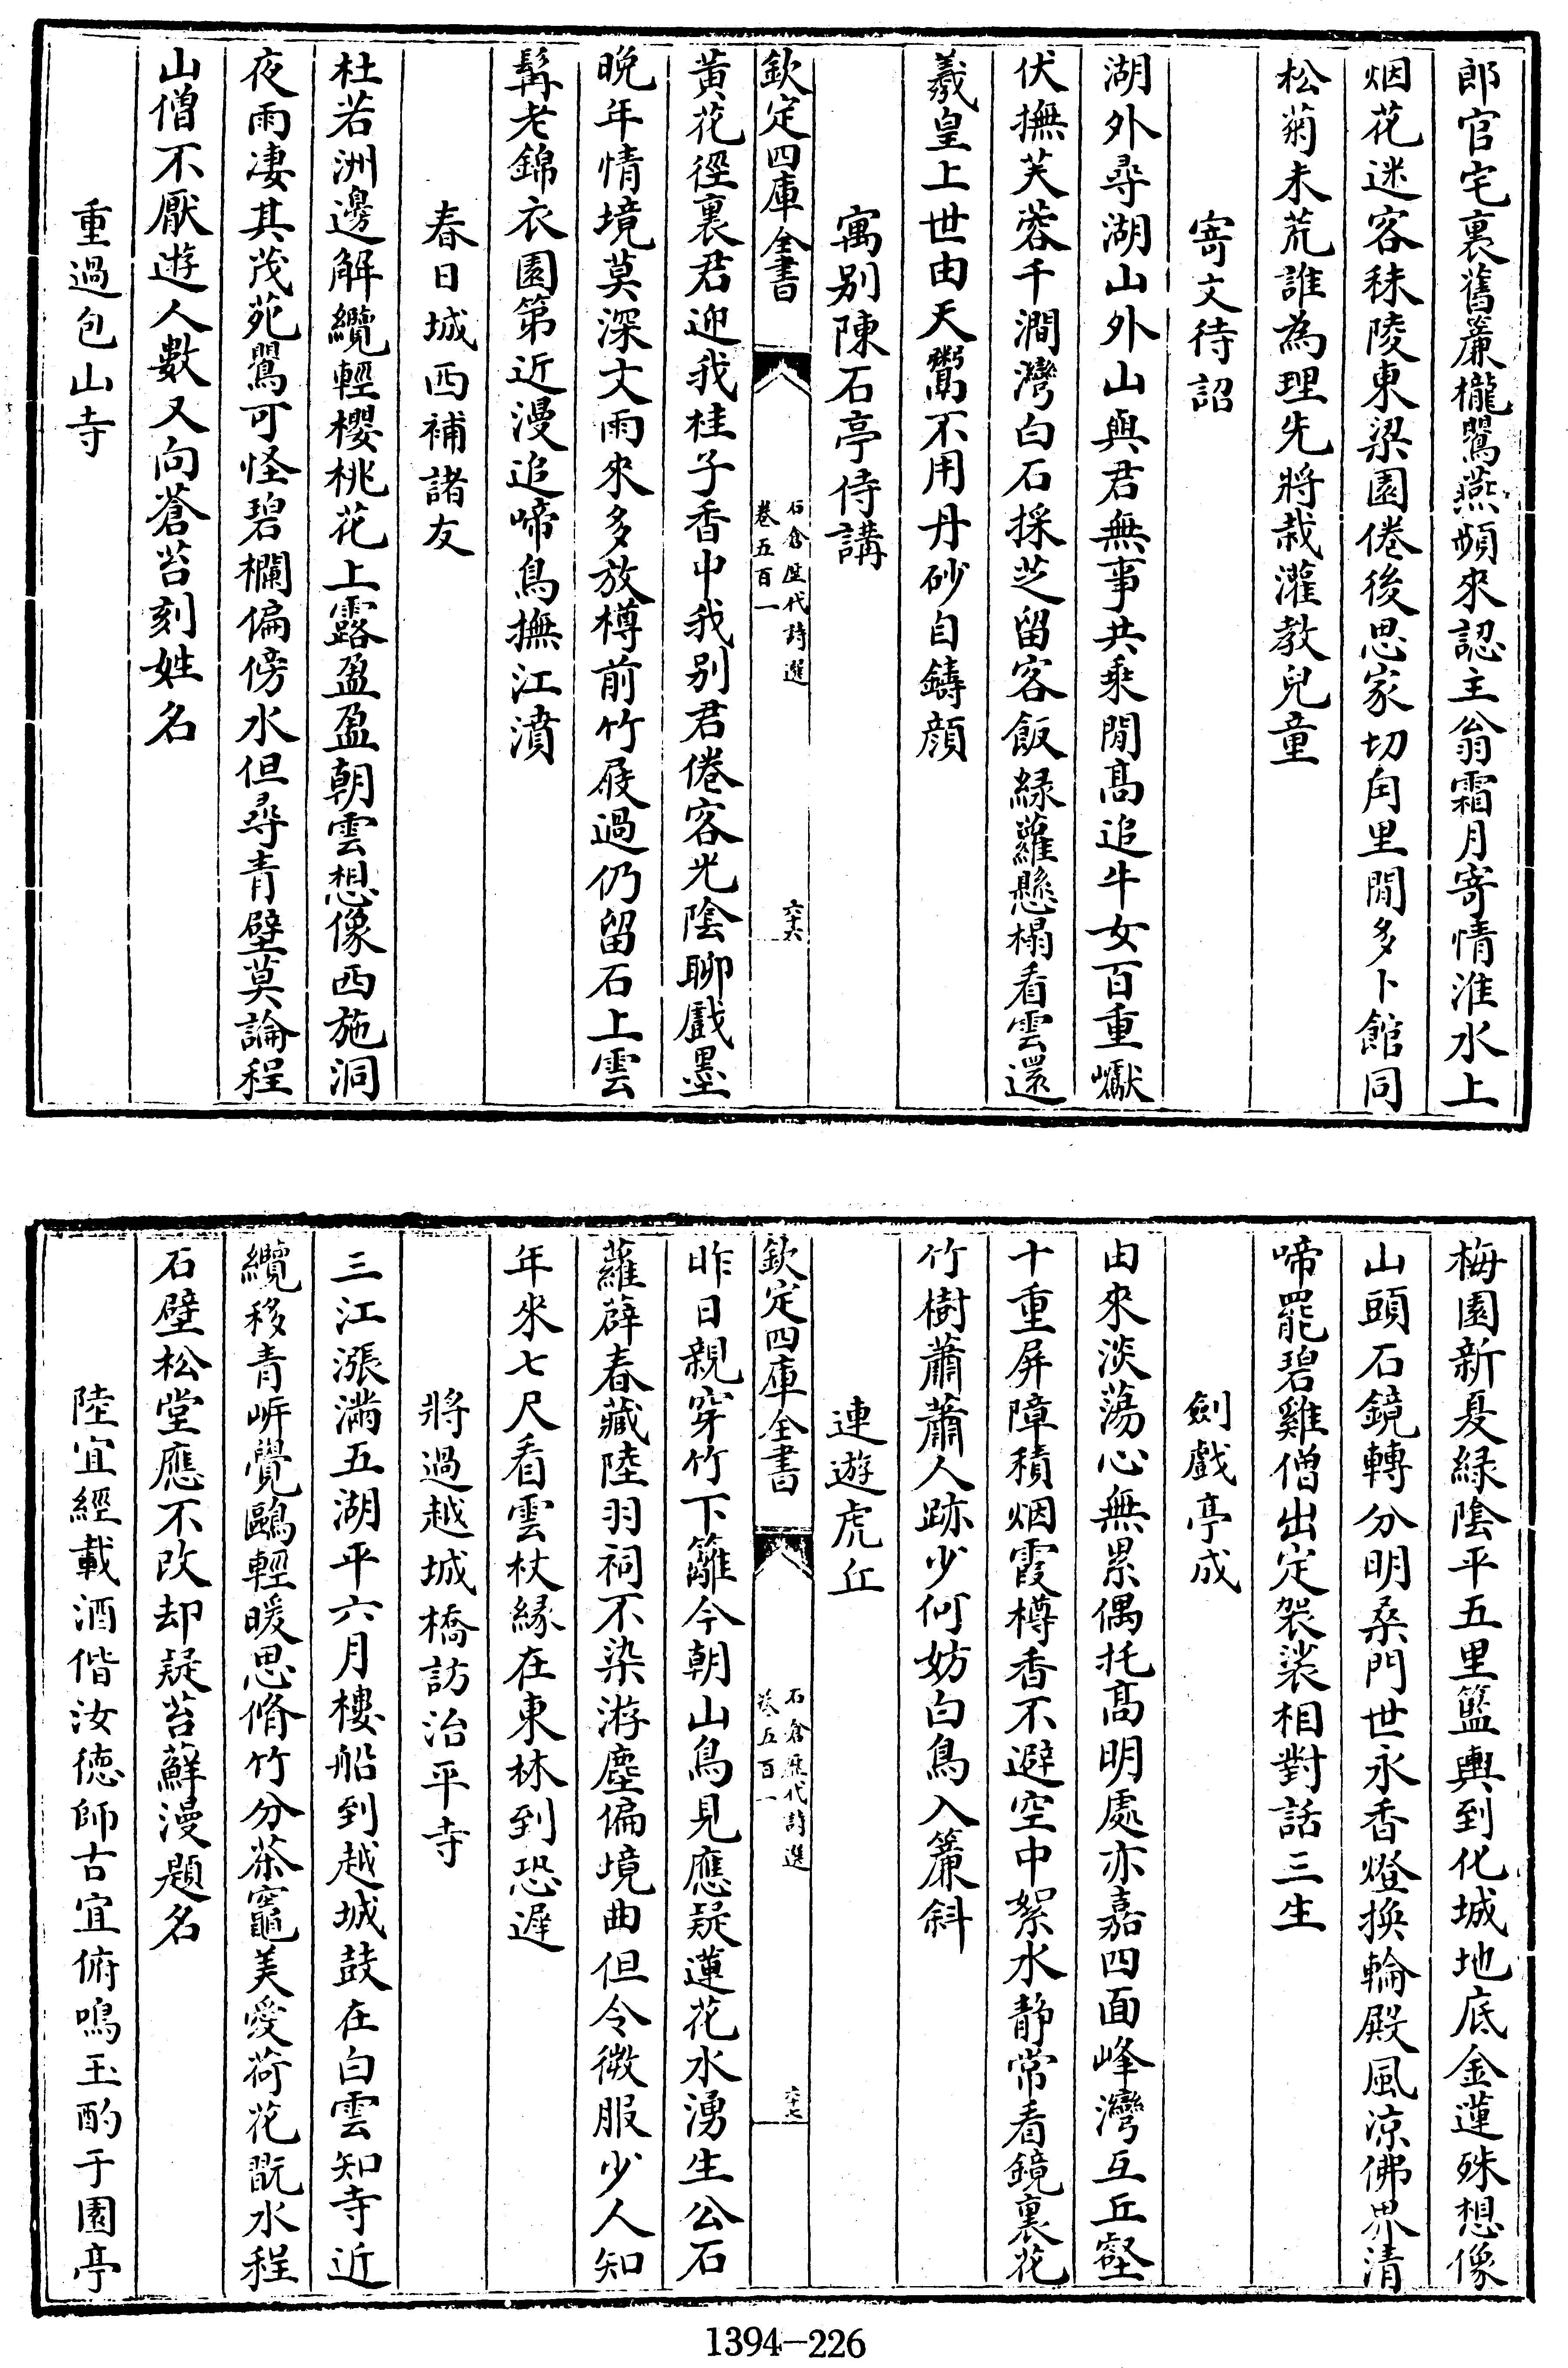 郎官宅裏舊簾櫳鸎燕頻來認主翁霜月寄情淮水上
烟花迷客秣陵東梁園倦後思家切角里閒多卜館同
松菊未荒誰為理先將栽灌教兒童
寄文待詔
湖外尋湖山外山與君無事共乘閒高追牛女百重巘
伏撫芙蓉千澗灣白石採芝留客飯緑蘿懸榻看雲還
羲皇上世由天鬻不用丹砂自鑄顔
寓别陳石亭侍講
欽定四庫全書
石倉歴代詩選
卷五百一
六十六
黄花徑裏君迎我桂子香中我别君倦客光陰聊戲墨
晩年情境莫深文雨來多放樽前竹屐過仍留石上雲
髯老錦衣園第近漫追啼鳥撫江濆
春日城西補諸友
杜若洲邊解纜輕櫻桃花上露盈盈朝雲想像西施洞
夜雨凄其茂苑鸎可怪碧欄偏傍水但尋青壁莫論程
山僧不厭遊人數又向蒼苔刻姓名
重過包山寺
梅園新夏緑陰平五里籃輿到化城地底金蓮殊想像
山頭石鏡轉分明桑門世永香燈換輪殿風凉佛界清
啼罷碧雞僧出定袈裟相對話三生
劍戲亭成
由來淡蕩心無累偶托高明處亦嘉四面峰灣互丘壑
十重屏障積烟霞樽香不避空中絮水静常看鏡裏花
竹樹蕭蕭人跡少何妨白鳥入簾斜
連遊虎丘
欽定四庫全書
石倉歴代詩選
卷五百一
六十七
昨日親穿竹下籬今朝山鳥見應疑蓮花水湧生公石
蘿薜春藏陸羽祠不染游塵偏境曲但令微服少人知
年來七尺看雲杖緣在東林到恐遲
將過越城橋訪治平寺
三江漲滿五湖平六月樓船到越城鼓在白雲知寺近
纜移青㟁覺鷗輕暖思脩竹分茶竈美愛荷花翫水程
石壁松堂應不改却疑苔蘚漫題名
陸宜經載酒偕汝德師古宜俯鳴玉酌于園亭
1394-226